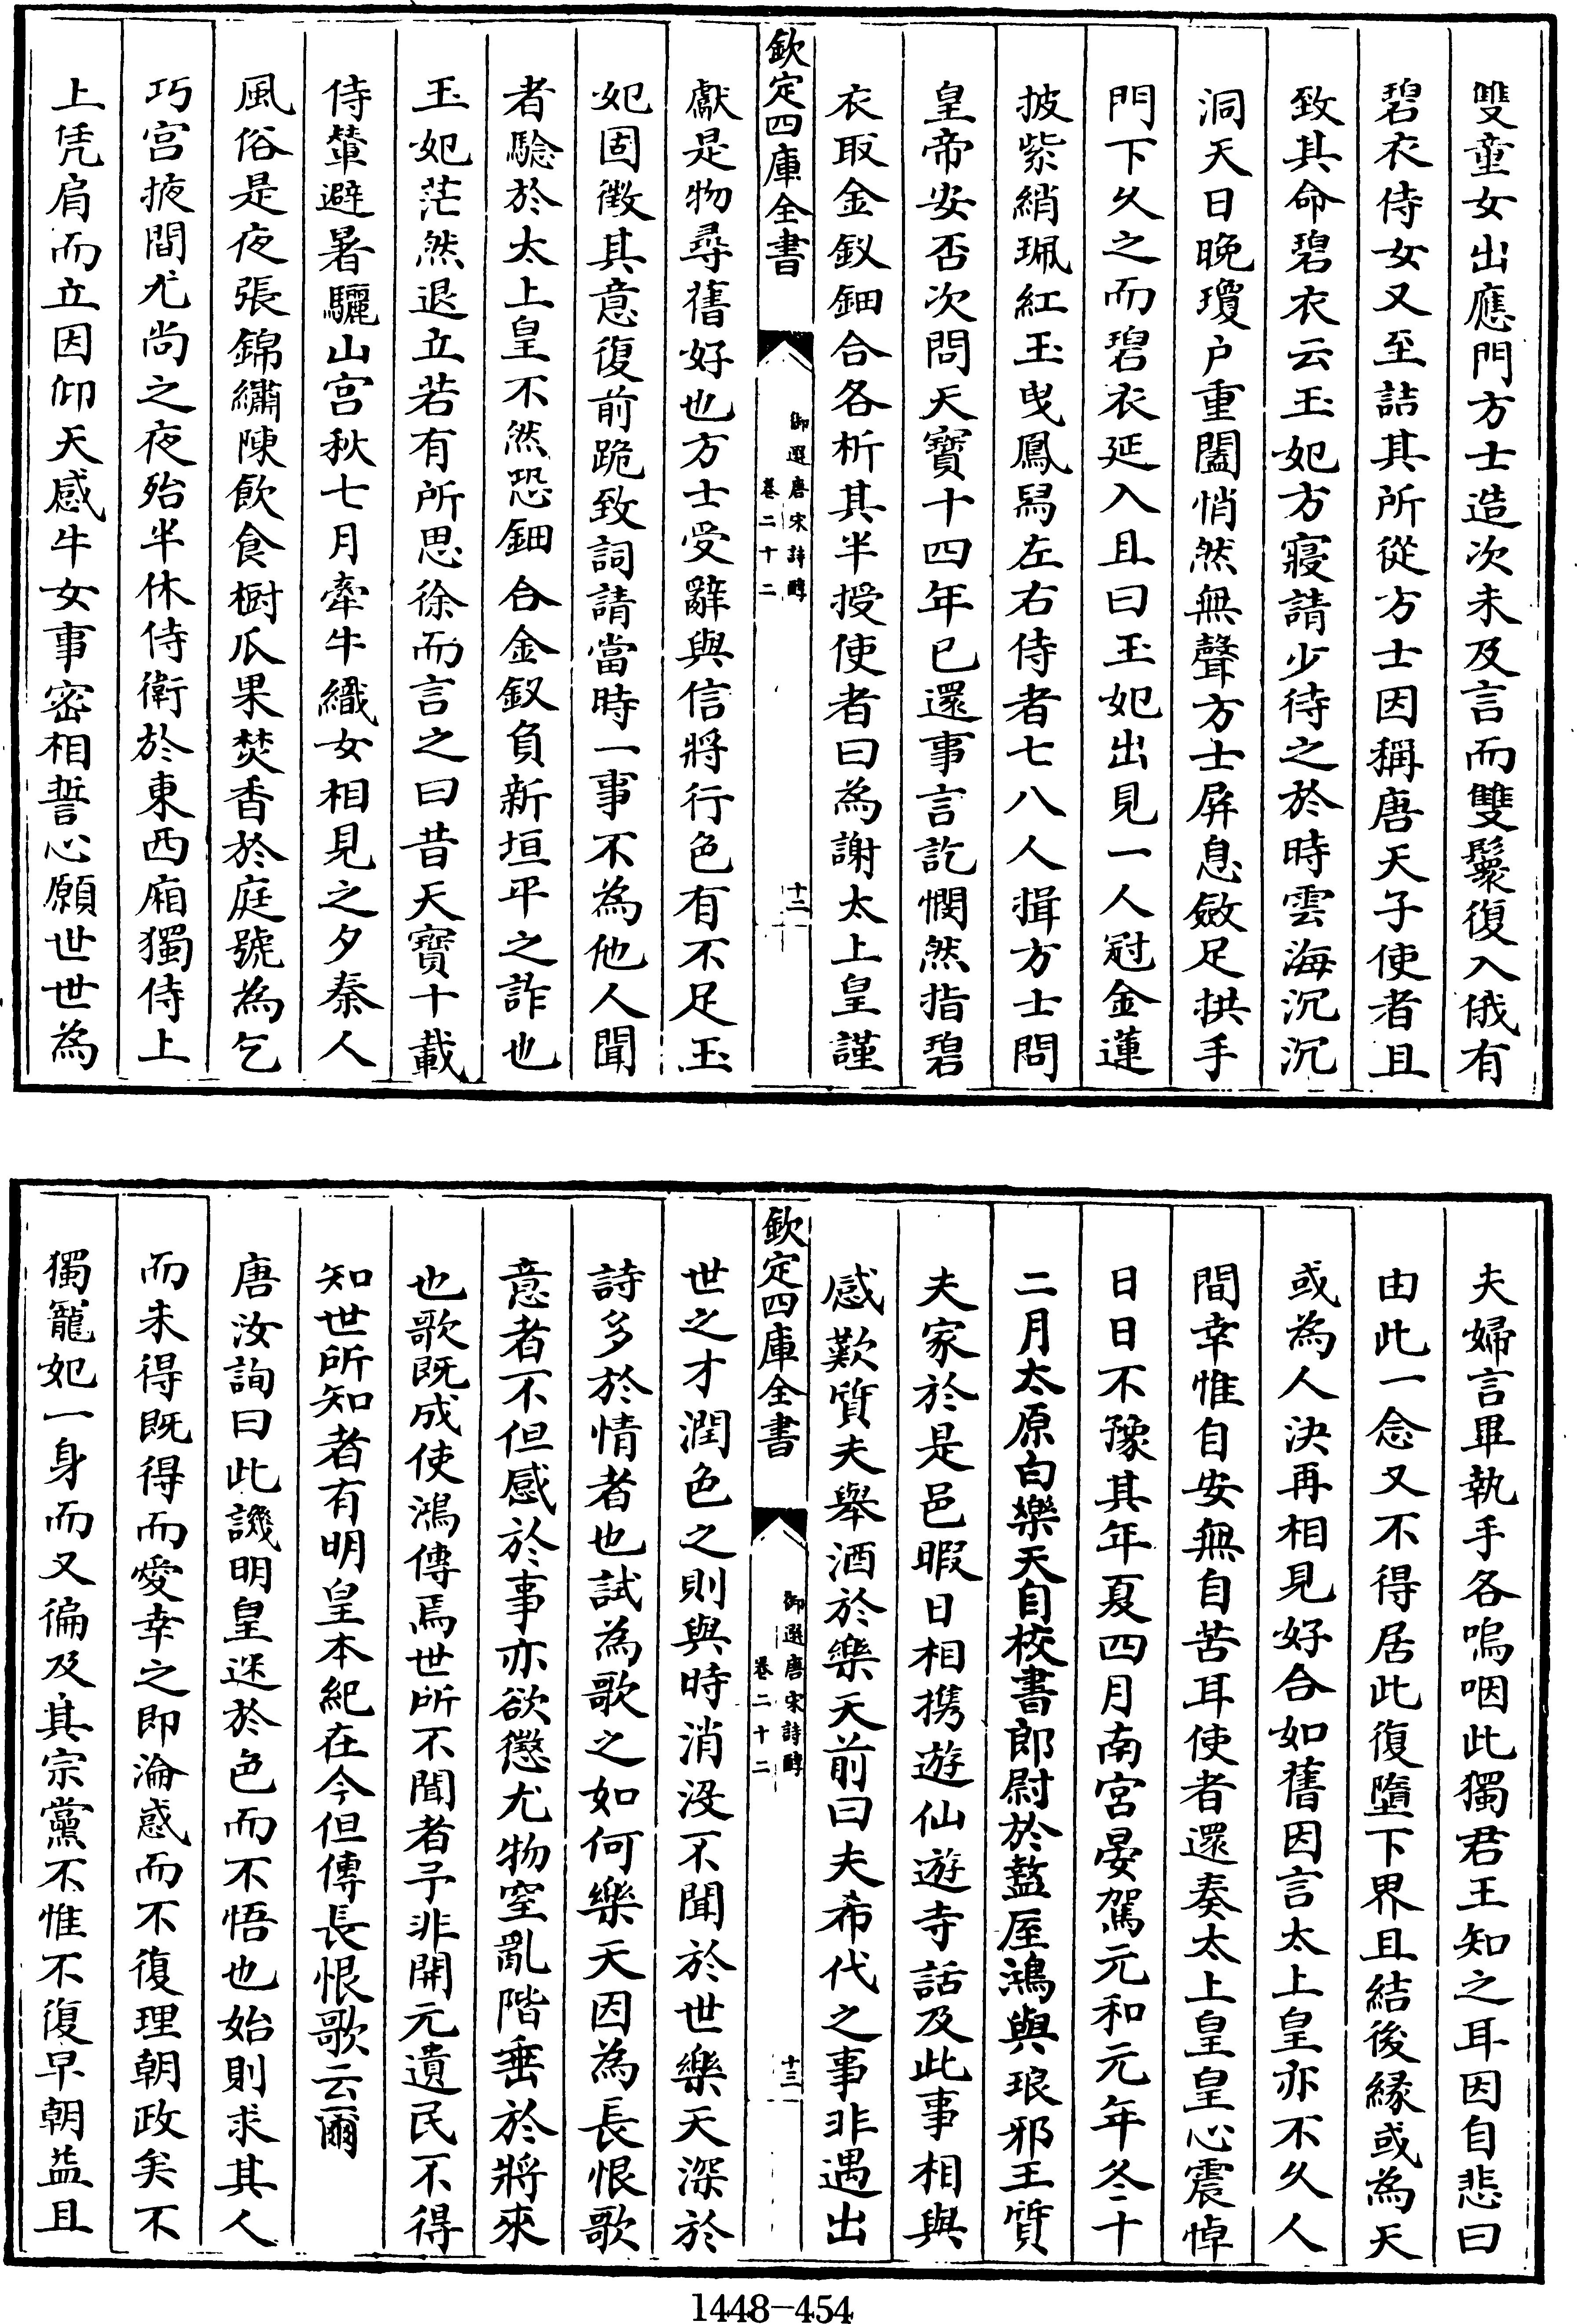 雙童女出應門方士造次未及言而雙鬟復入俄有
碧衣侍女又至詰其所從方士因稱唐天子使者且
致其命碧衣云玉妃方寢請少待之於時雲海沉沉
洞天日晚瓊户重闔悄然無聲方士屏息斂足拱手
門下久之而碧衣延入且曰玉妃出見一人冠金蓮
披紫綃珮紅玉曳鳳舄左右侍者七八人揖方士問
皇帝安否次問天寶十四年已還事言訖憫然指碧
衣取金釵鈿合各析其半授使者曰為謝太上皇謹
欽定四庫全書
御選唐宋詩醇
卷二十二
十二
獻是物尋舊好也方士受辭與信將行色有不足玉
妃固徵其意復前跪致詞請當時一事不為他人聞
者驗於太上皇不然恐鈿合金釵負新垣平之詐也
玉妃茫然退立若有所思徐而言之曰昔天寶十載
侍輦避暑驪山宮秋七月牽牛織女相見之夕秦人
風俗是夜張錦繡陳飲食樹瓜果焚香於庭號為乞
巧宮掖間尤尚之夜殆半休侍衛於東西廂獨侍上
上凭肩而立因仰天感牛女事密相誓心願世世為
夫婦言畢執手各嗚咽此獨君王知之耳因自悲曰
由此一念又不得居此復墮下界且結後緣或為天
或為人決再相見好合如舊因言太上皇亦不久人
間幸惟自安無自苦耳使者還奏太上皇皇心震悼
日日不豫其年夏四月南宮晏駕元和元年冬十
二月太原白樂天自校書郎尉於盩厔鴻與琅邪王質
夫家於是邑暇日相携遊仙遊寺話及此事相與
感歎質夫舉酒於樂天前曰夫希代之事非遇出
欽定四庫全書
御選唐宋詩醇
卷二十二
十三
世之才潤色之則與時消沒不聞於世樂天深於
詩多於情者也試為歌之如何樂天因為長恨歌
意者不但感於事亦欲懲尤物窒亂階垂於將來
也歌既成使鴻傳焉世所不聞者予非開元遺民不得
知世所知者有明皇本紀在今但傳長恨歌云爾
唐汝詢曰此譏明皇迷於色而不悟也始則求其人
而未得既得而愛幸之即淪惑而不復理朝政矣不
獨寵妃一身而又徧及其宗黨不惟不復早朝益且
1448-454